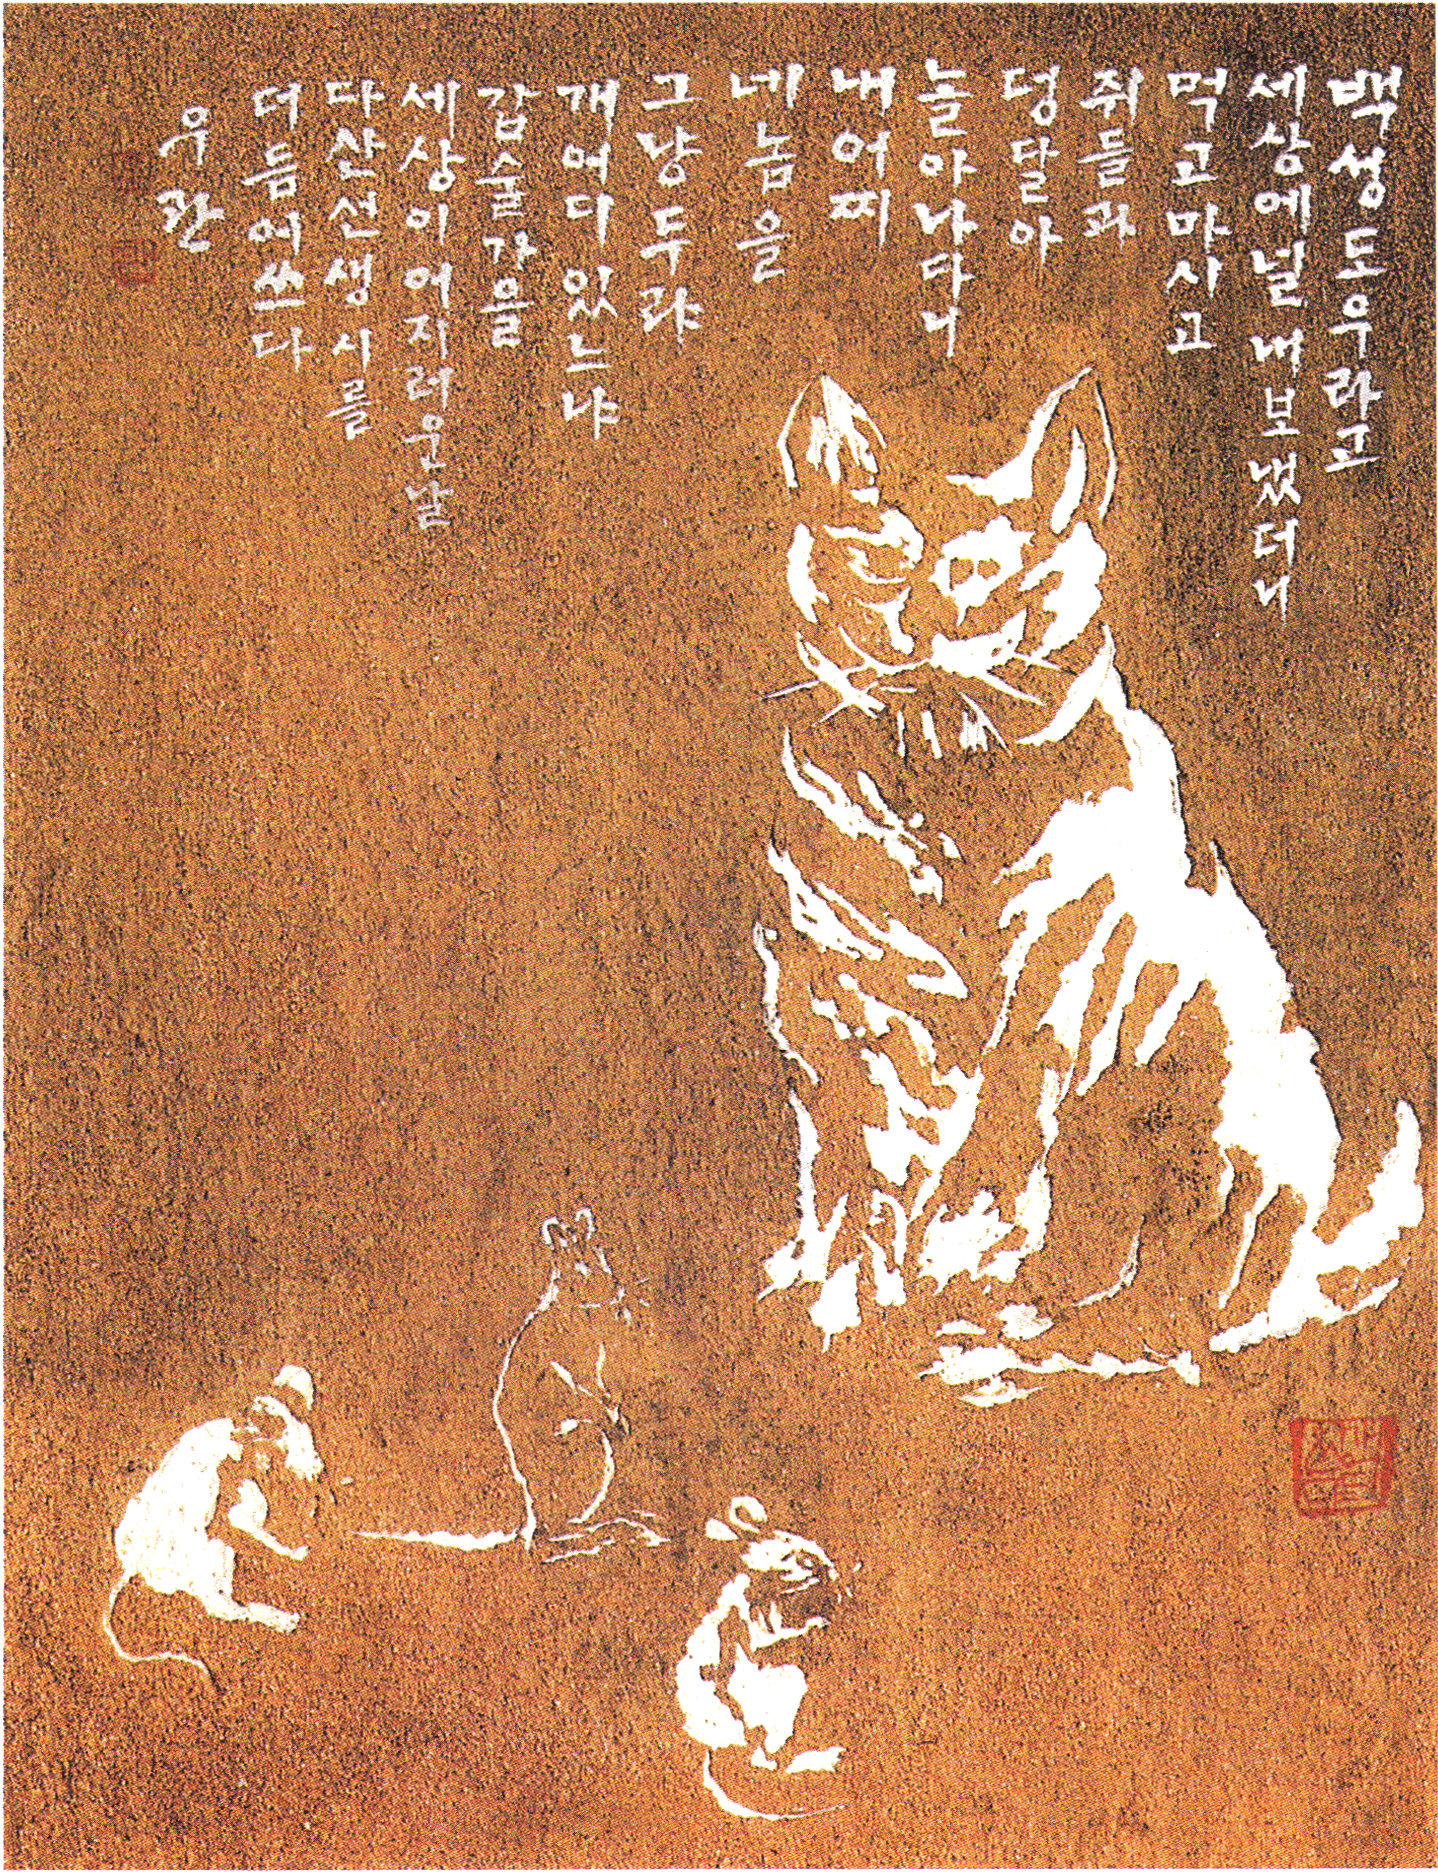 백성도우라고
세상에널내보냈더니
먹고마사고
쥐들과
덩달아
놀아나다니
내어찌
네놈을
그냥두랴
개여다있느냐
갑술가을
세상이어지러운날
다산선생시를
더듬어쓰다
우관